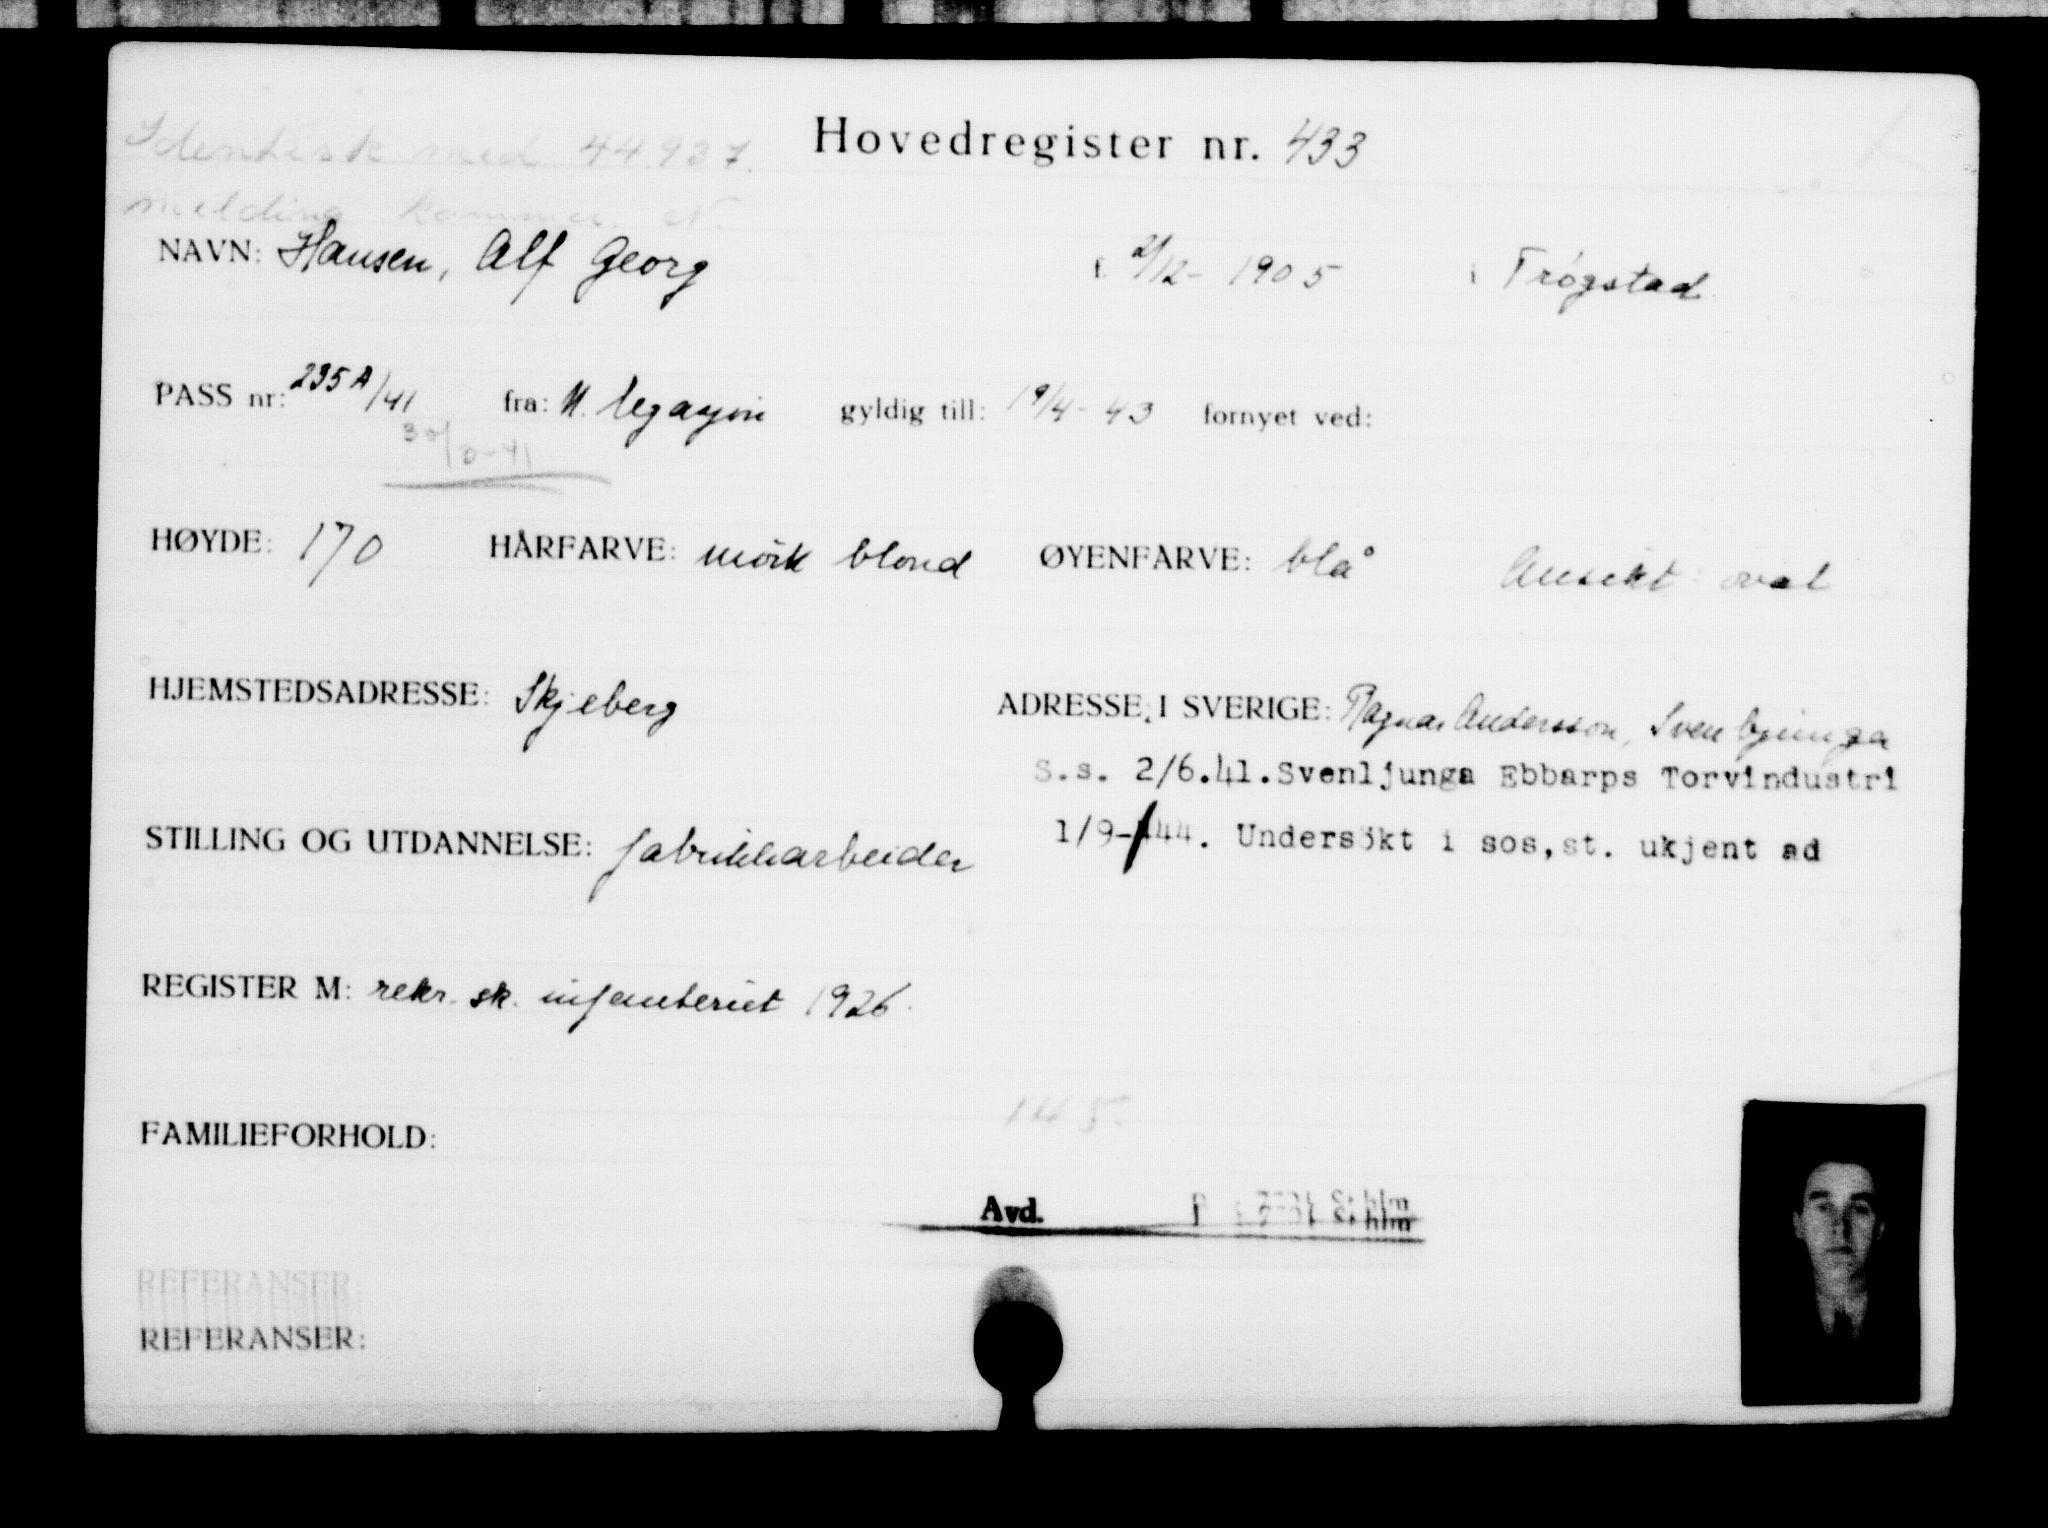 Identisk med 44937. Hovedregister nr. 433
melding kommer
NAVN: Hansen, Alf Georg f. 2/12- 1905 i Trøgstad
PASS nr: 235A/41 fra: N. legasjon gyldig till: 19/4-43 fornyet ved:
HØYDE: 170 HÅRFARVE: mörk blond ØYENFARVE: blå Ansikt: oval
HJEMSTEDSADRESSE: Skjeberg ADRESSE I SVERIGE: Ragnar Andersson, Svenljunga
S.s. 2/6.41. Svenljunga Ebbarps Torvindustri
STILLING OG UTDANNELSE: fabrikkarbeider 1/9-44. Undersökt i sos,st. ukjent ad
REGISTER M: rekr. sk. infanteriet 1926.
145.
FAMILIEFORHOLD:
Avd.
REFERANSER
REFERANSER: